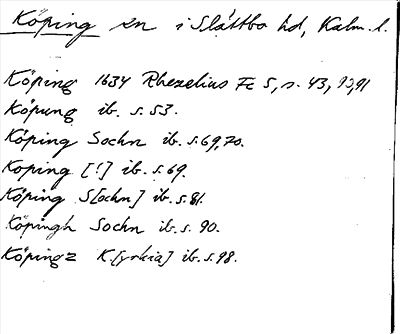 Köping sn i Sláttbo hd, Kalm. l.
Köping 1634 Rhezelius Fc 5, s. 43, 90, 91
Köpung ib. s. 53.
Köping Sochn ib. s. 69, 70.
Koping [!] ib. s. 69.
Köping S[ochn] ib. s. 81.
Köpingh Sochn ib. s. 90.
Köpingz K[yrkia] ib. s. 98.